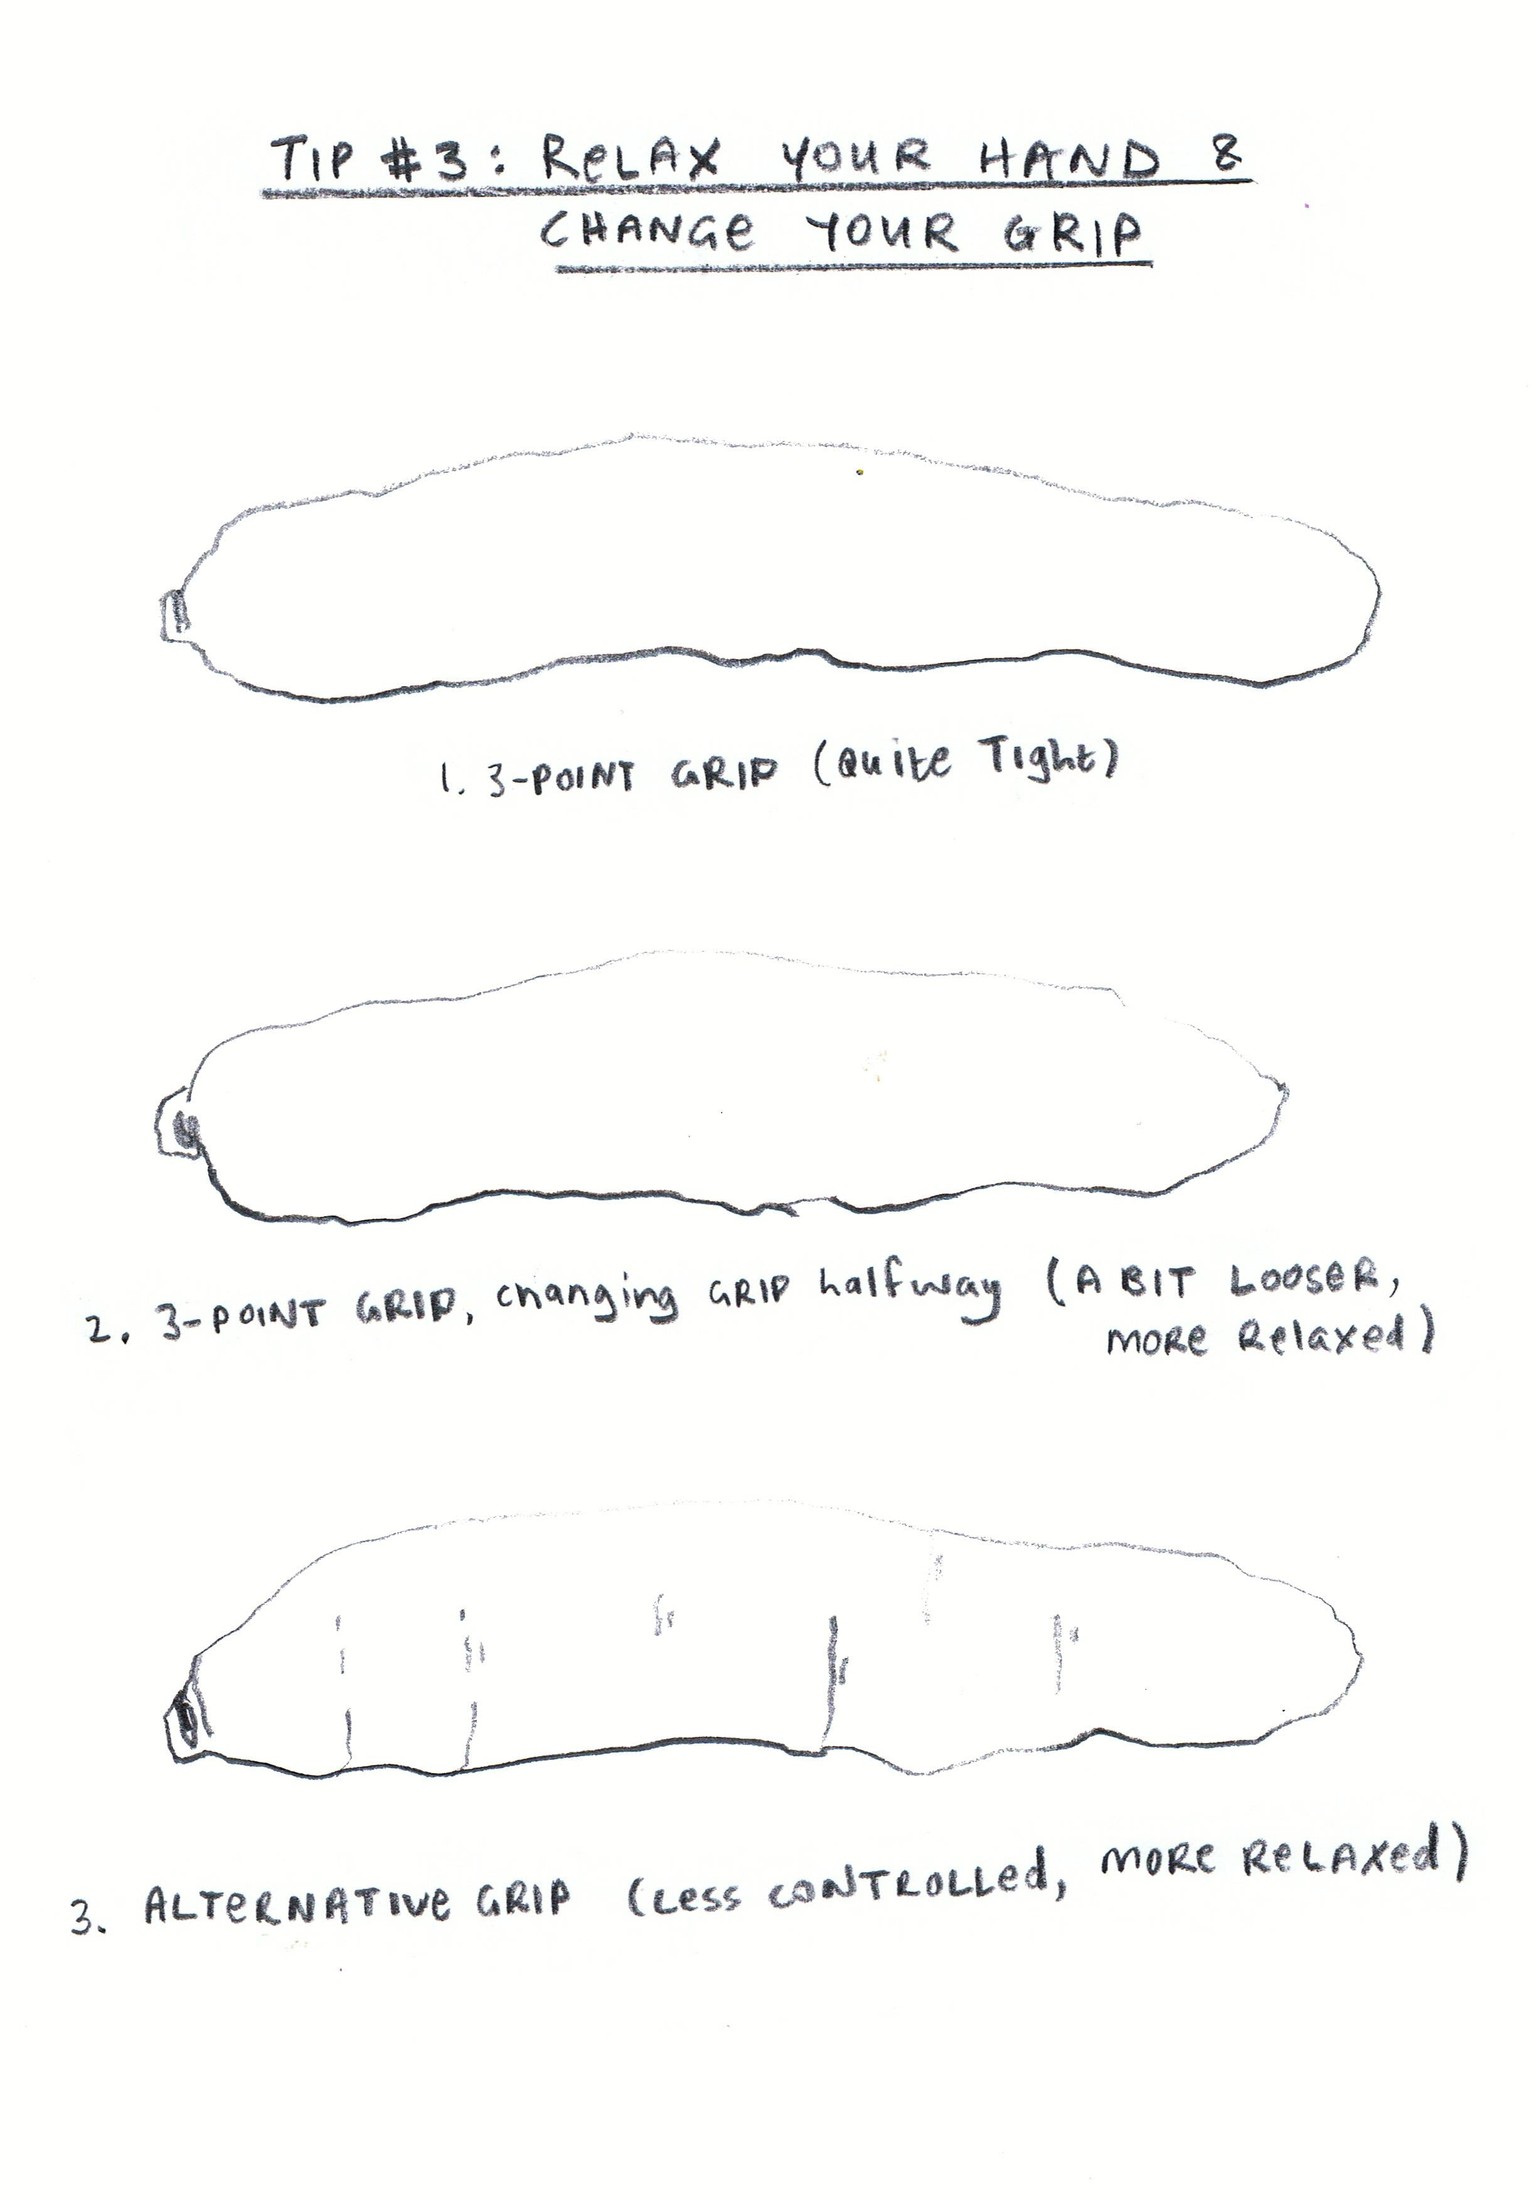 TIP #3: RELAX YOUR HAND &
CHANGE YOUR GRIP
1. 3-POINT GRIP (Quite Tight)
2. 3-POINT GRIP, changing GRIP halfway (A BIT LOOSER,
MORE Relaxed)
3. ALTERNATIVE GRIP (Less CONTROLLed, MORE RELAXed)